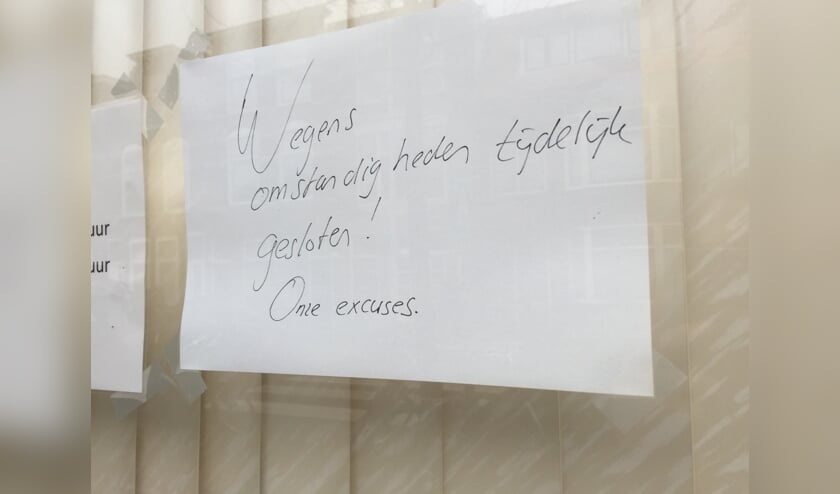 uur
uur
Wegens
omstandigheden tijdelijk
gesloten!
Onze excuses.